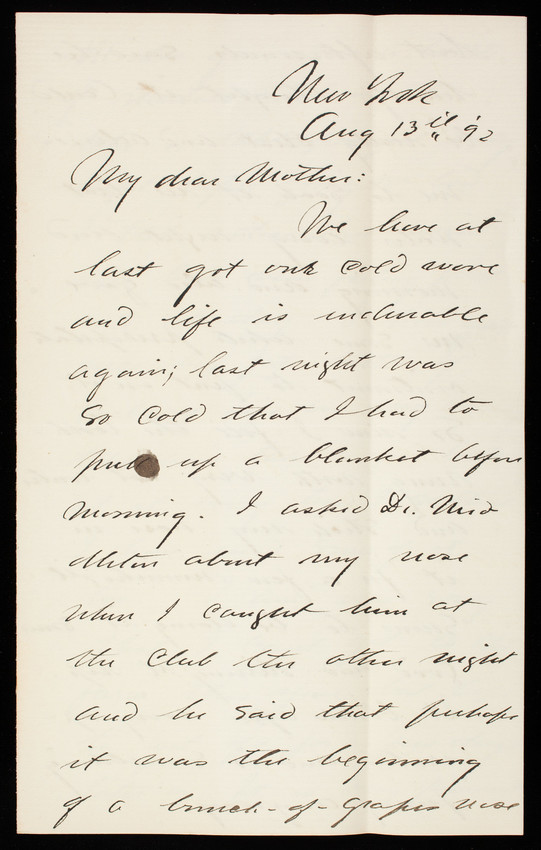 New York
Aug 13th '92
My dear Mother:
We have at
last got our cold wave
and life is endurable
again; last night was
so cold that I had to
pull up a blanket before
morning. I asked Dr. Mid
dleton about my nose
when I caught him at
the Club the other night
and he said that perhaps
it was the beginning
of a bunch-of-grapes nose